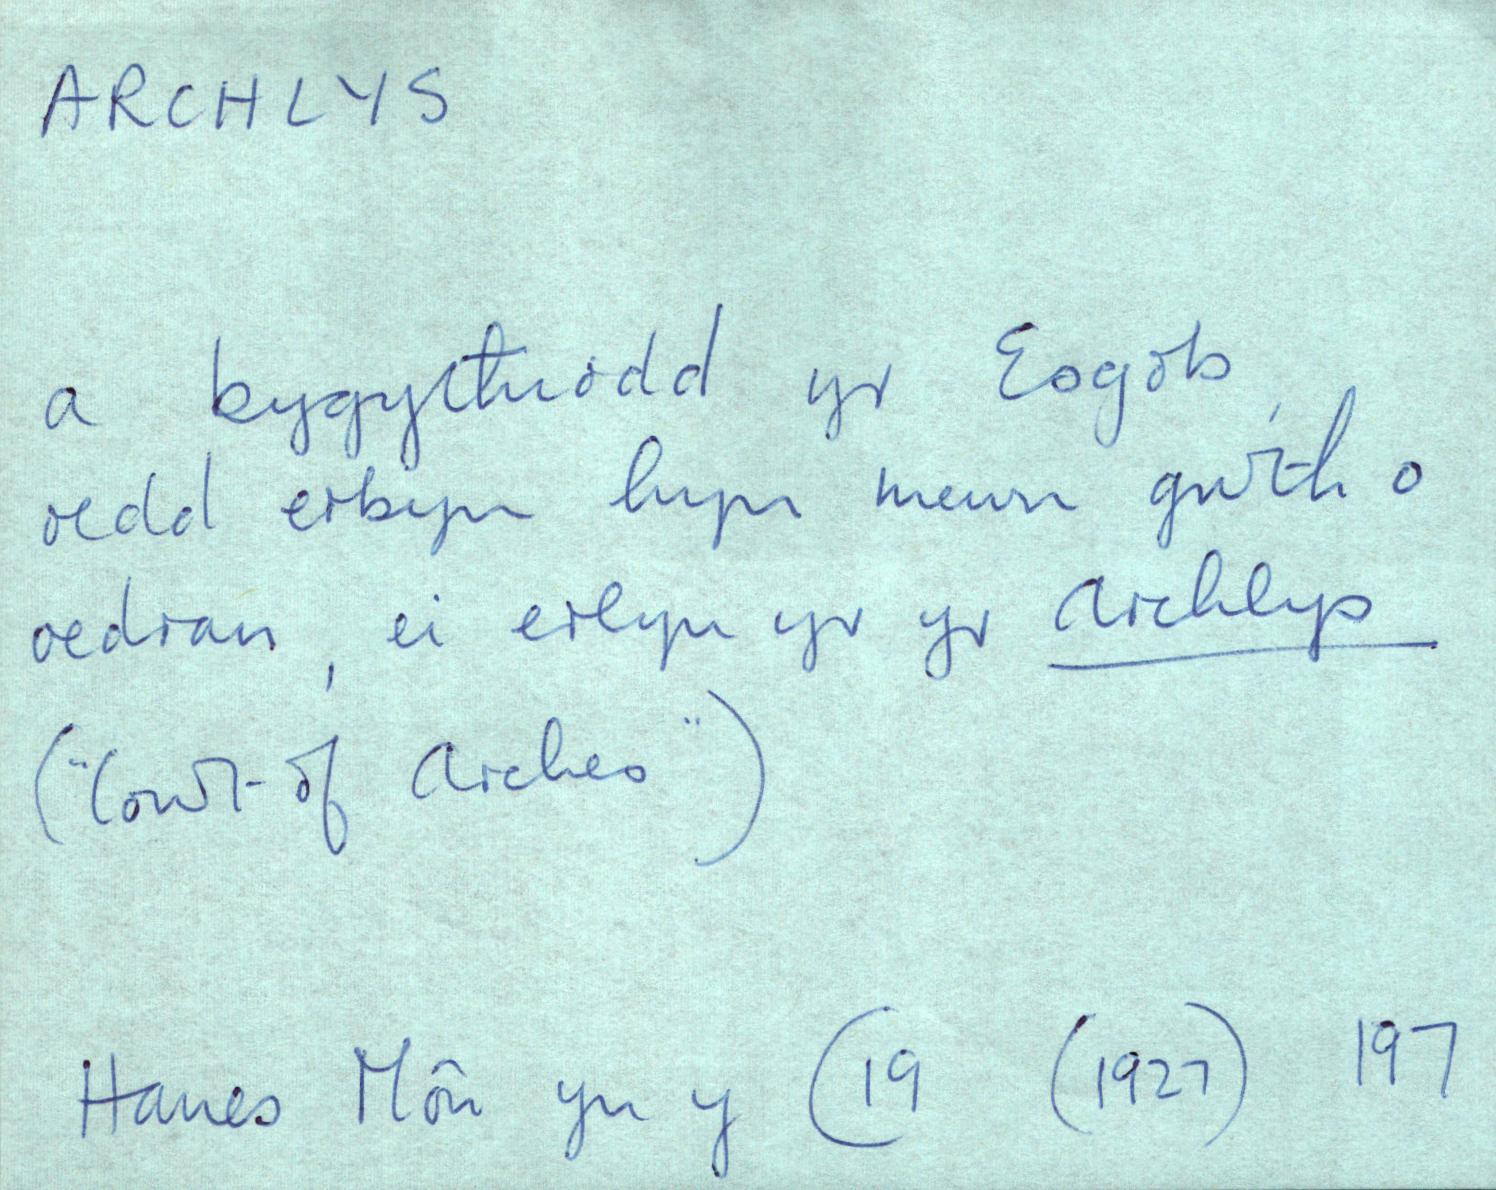 ARCHLYS
a bygythiodd yr Esgob,
oedd erbyn hyn mewn gwth o
oedran, ei erlyn yr yr Archlys
("Court of Arches")
Hanes Môn yn y (19 (1927) 197